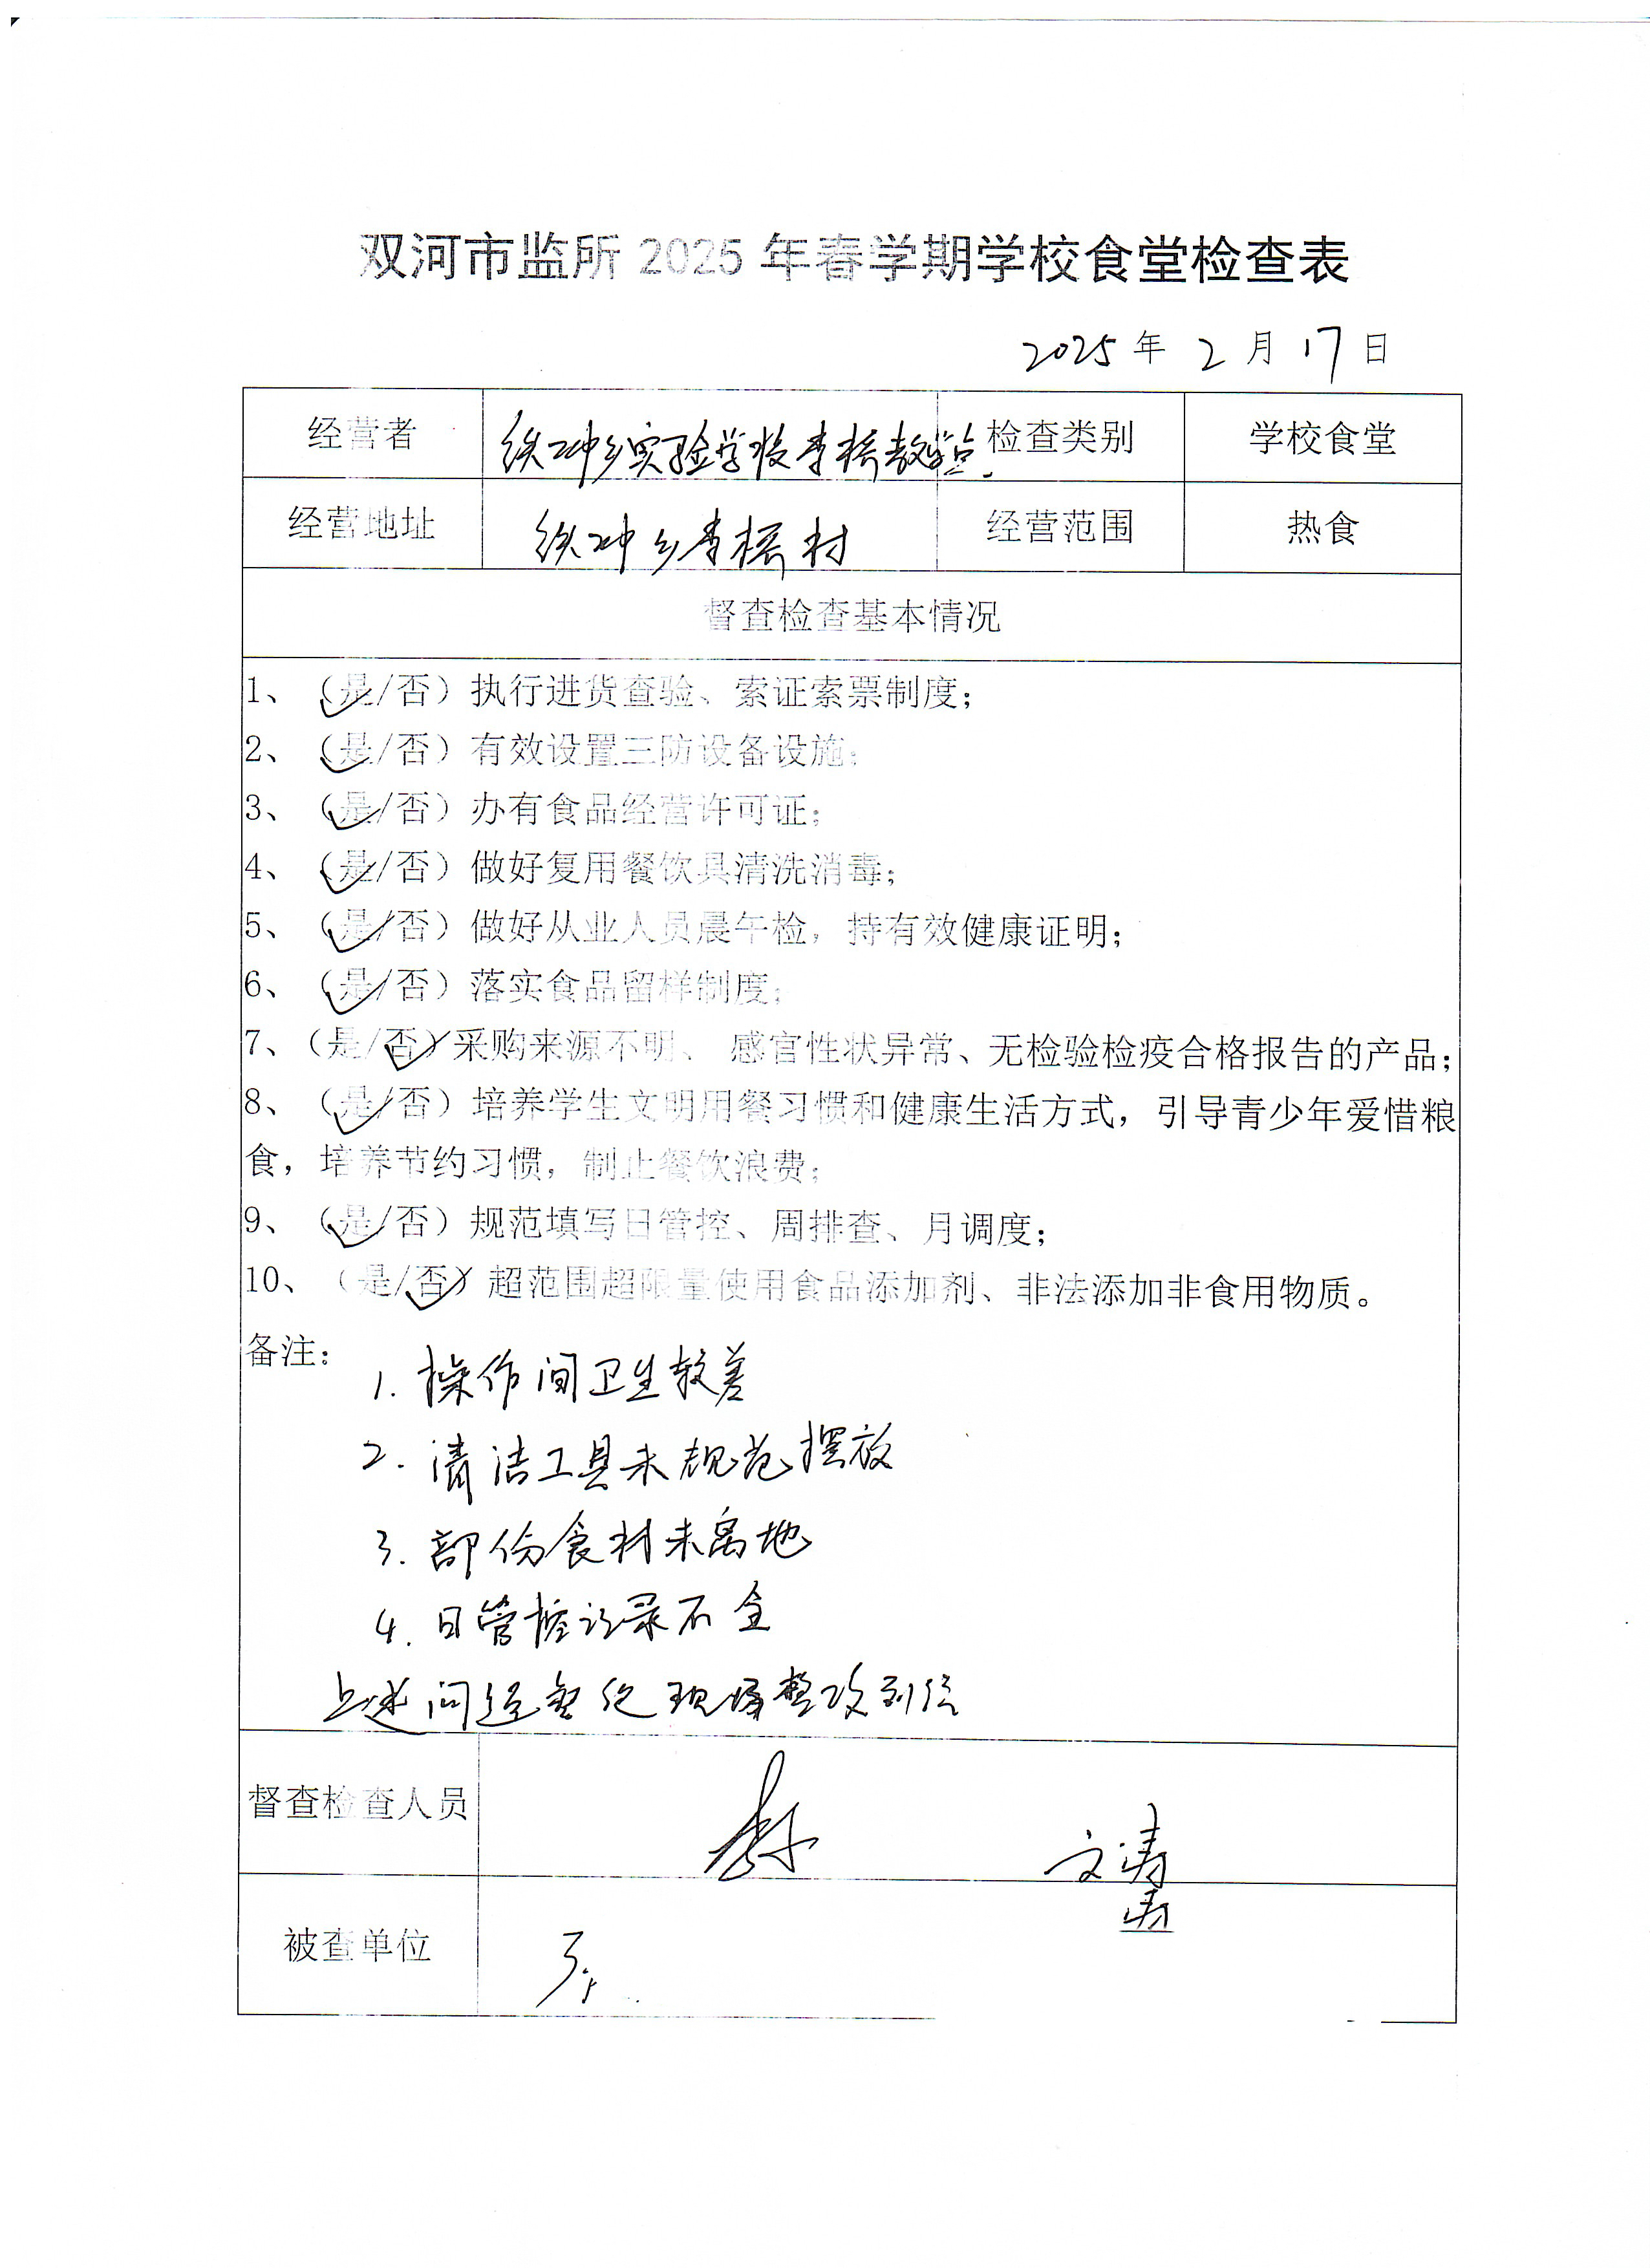 双河市监所 2025 年春学期学校食堂检查表
2025 年 2 月 17 日
经营者 铁冲乡实验学校李桥教学点. 检查类别 学校食堂
经营地址 铁冲乡李桥村 经营范围 热食
督查检查基本情况
1、（是/否）执行进货查验、索证索票制度；
2、（是/否）有效设置三防设备设施；
3、（是/否）办有食品经营许可证；
4、（是/否）做好复用餐饮具清洗消毒；
5、（是/否）做好从业人员晨午检，持有效健康证明；
6、（是/否）落实食品留样制度；
7、（是/否）采购来源不明、 感官性状异常、无检验检疫合格报告的产品；
8、（是/否）培养学生文明用餐习惯和健康生活方式，引导青少年爱惜粮
食，培养节约习惯，制止餐饮浪费；
9、（是/否）规范填写日管控、周排查、月调度；
10、（是/否）超范围超限量使用食品添加剂、非法添加非食用物质。
备注：
1. 操作间卫生较差
2. 清洁工具未规范摆放
3. 部份食材未离地
4. 日管控记录不全
上述问题 现场整改到位
督查检查人员 文涛
被查单位